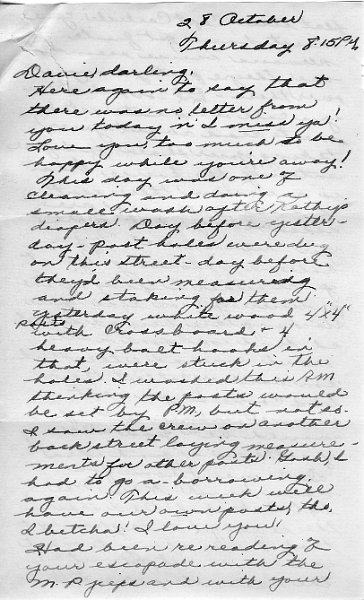 28 October
Thursday 8:15 PM
Davie darling,
Here again to say that
there was no letter from
you today 'n I miss ya!
Love you, too much to be
happy while you're away!
This day was one of
cleaning and doing a
small wash after Kathy's
diapers. Day before yester-
day - post holes were dug
on this street - day before
they'd been measuring
and staking for them
yesterday white wood 4"x4"
posts
with crossboard & 4
heavy bolt hooks in
that, were stuck in the
holes. I washed this AM
thinking the posts would
be set by PM, but not so.
I saw the crew on another
back street laying measure-
ments for other posts. Gosh, I
had to go a-borrowing
again. This week we'll
have our own posts, tho,
I betcha! I love you!
Had been rereading of
your escapade with the
M.P. jeeps and with your